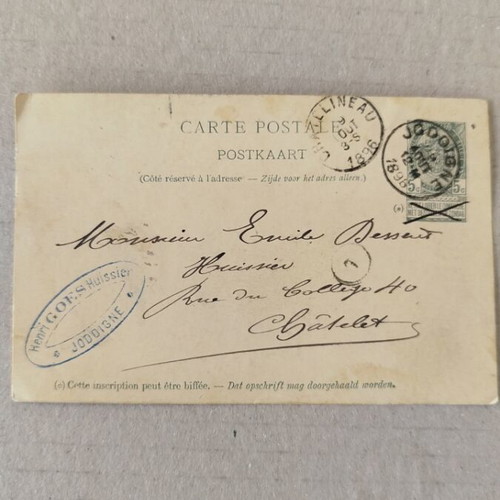 CARTE POSTALE
POSTKAART
(Côté réservé à l'adresse. — Zijde voor het adres alleen.)
CHATELINEAU
AOUT
1896
JODOIGNE
AOUT
1896
5c 5c
(*)
Monsieur Emile Bessent
Huissier
1
Rue du Collège 40
Châtelet
Henri GOES Huissier
* JODOIGNE *
(*) Cette inscription peut être biffée. — Dat opschrift mag doorgehaald worden.